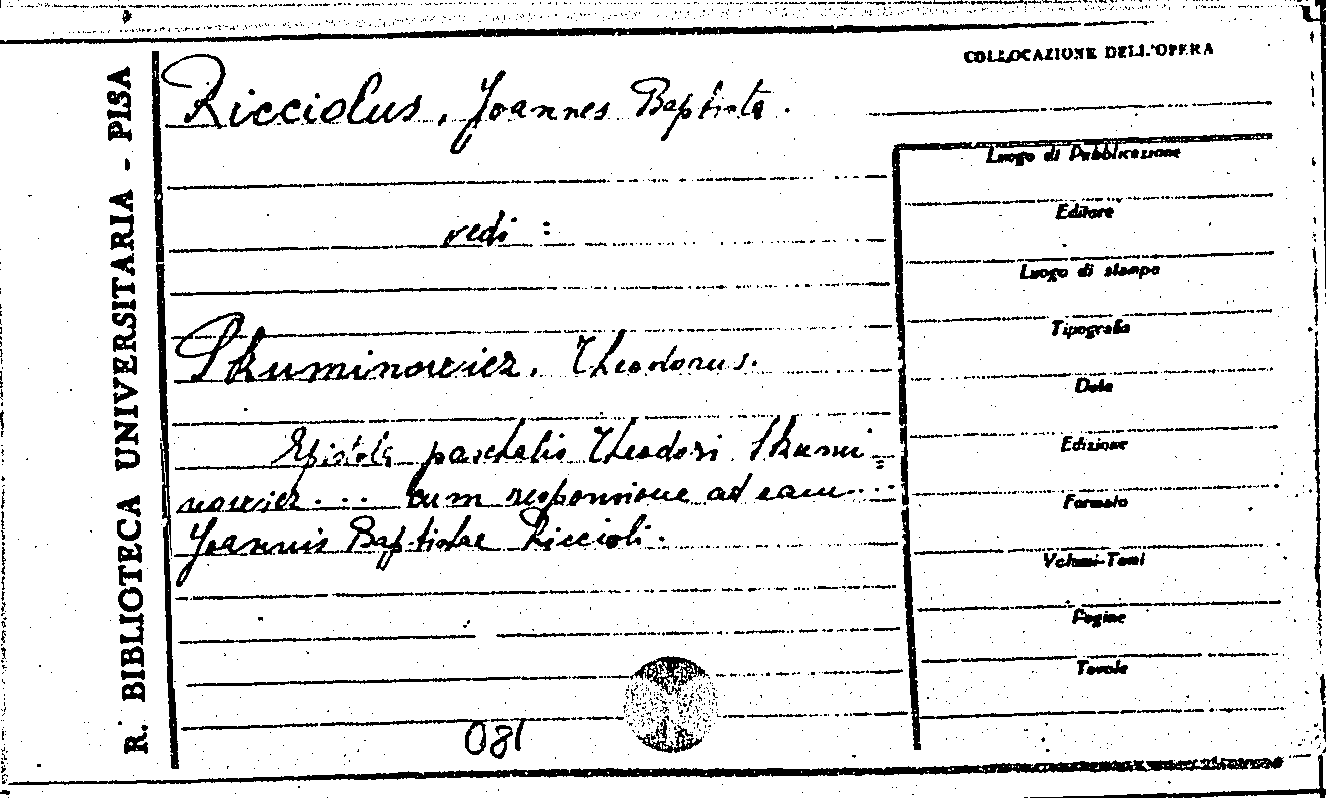 R. BIBLIOTECA UNIVERSITARIA - PISA
Ricciolus, Joannes Baptista.
vedi :
Skuminowicz, Theodorus.
Epistola paschalis Theodori Skumi=
nowicz... cum responsione ad eam...
Joannis Baptistae Riccioli.
081
COLLOCAZIONE DELL'OPERA
Luogo di Pubblicazione
Editore
Luogo di stampa
Tipografia
Data
Edizione
Formato
Volumi-Tomi
Pagine
Tavole